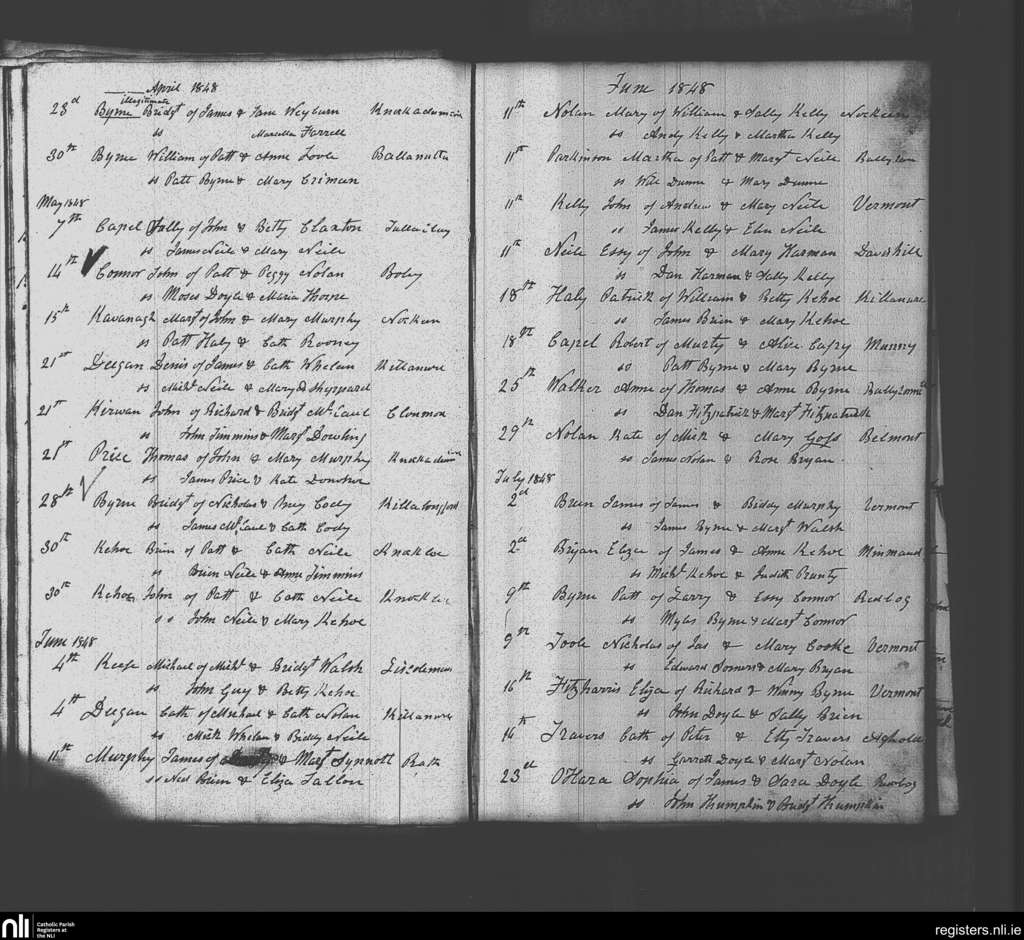 April 1848
illegitimate
23d Byrne Bridgt of James & Jane Weyburn
ss Marcella Farrell
30th Byrne William of Patt & Anne Toole Ballanulta
ss Patt Byrne & Mary Crimeen
May 1848
7th Capel Sally of John & Betty Claxton
ss James Neile & Mary Neile
14th Connor John of Patt & Peggy Nolan Boley
ss Moses Doyle & Maria Thorpe
15th Kavanagh Margt of John & Mary Murphy Nockeen
ss Patt Haly & Cath Rooney
21st Deegan Denis of James & Cath Whelan Killamore
ss Michl Neile & Mary Sheppard
21st Kirwan John of Richard & Bridgt McCaul Clonmon
ss John Timmins & Margt Dowling
21st Price Thomas of John & Mary Murphy
ss James Price & Kate Donohoe
28th Byrne Bridgt of Nicholas & Cody
ss James McCaul & Cath Cody
30th Kehoe Brien of Patt & Cath Neile Knockloe
ss Brien Neile & Anne Timmins
30th Kehoe John of Patt & Cath Neile Knockloe
ss John Neile & Mary Kehoe
June 1848
4th Keefe Michael of Michl & Bridgt Walsh
ss John Guy & Betty Kehoe
4th Deegan Cath of Michael & Cath Nolan Killamore
ss Mick Whelan & Biddy Neile
11th Murphy James of & Margt Synnott Rath
ss Ned Brien & Eliza Fallon
June 1848
11th Nolan Mary of William & Sally Kelly Nockeen
ss Andy Kelly & Martha Kelly
11th Parkinson Martha of Patt & Margt Neile
ss Will Dunne & Mary Dunne
11th Kelly John of Andrew & Mary Neile Vermont
ss James Kelly & Elen Neile
11th Neile Essy of John & Mary Harman
ss Dan Harman & Sally Kelly
18th Haly Patrick of William & Betty Kehoe Killamore
ss James Brien & Mary Kehoe
18th Capel Robert of Murty & Alice Munny
ss Patt Byrne & Mary Byrne
25th Walker Anne of Thomas & Anne Byrne
ss Dan Fitzpatrick & Margt Fitzpatrick
29th Nolan Kate of Mick & Mary Goff Belmont
ss James Nolan & Rose Bryan
July 1848
2d Brien James of James & Biddy Murphy Vermont
ss James Byrne & Margt Walsh
2d Bryan Eliza of James & Anne Kehoe Minmaud
ss Michl Kehoe & Judith Prunty
9th Byrne Patt of Larry & Essy Connor Redbog
ss Myles Byrne & Margt Connor
9th Toole Nicholas of Jas & Mary Cooke Vermont
ss Edward Somers & Mary Bryan
16th Fitzharris Eliza of Richard & Winny Byrne Vermont
ss John Doyle & Sally Brien
16th Travers Cath of Peter & Etty Travers Aghold
ss Garrett Doyle & Margt Nolan
23d O'Hara Sophia of James & Sara Doyle Redbog
ss John Thumpkin & Bridgt Thumpkin
nli
Catholic Parish
Registers at
the NLI
registers.nli.ie